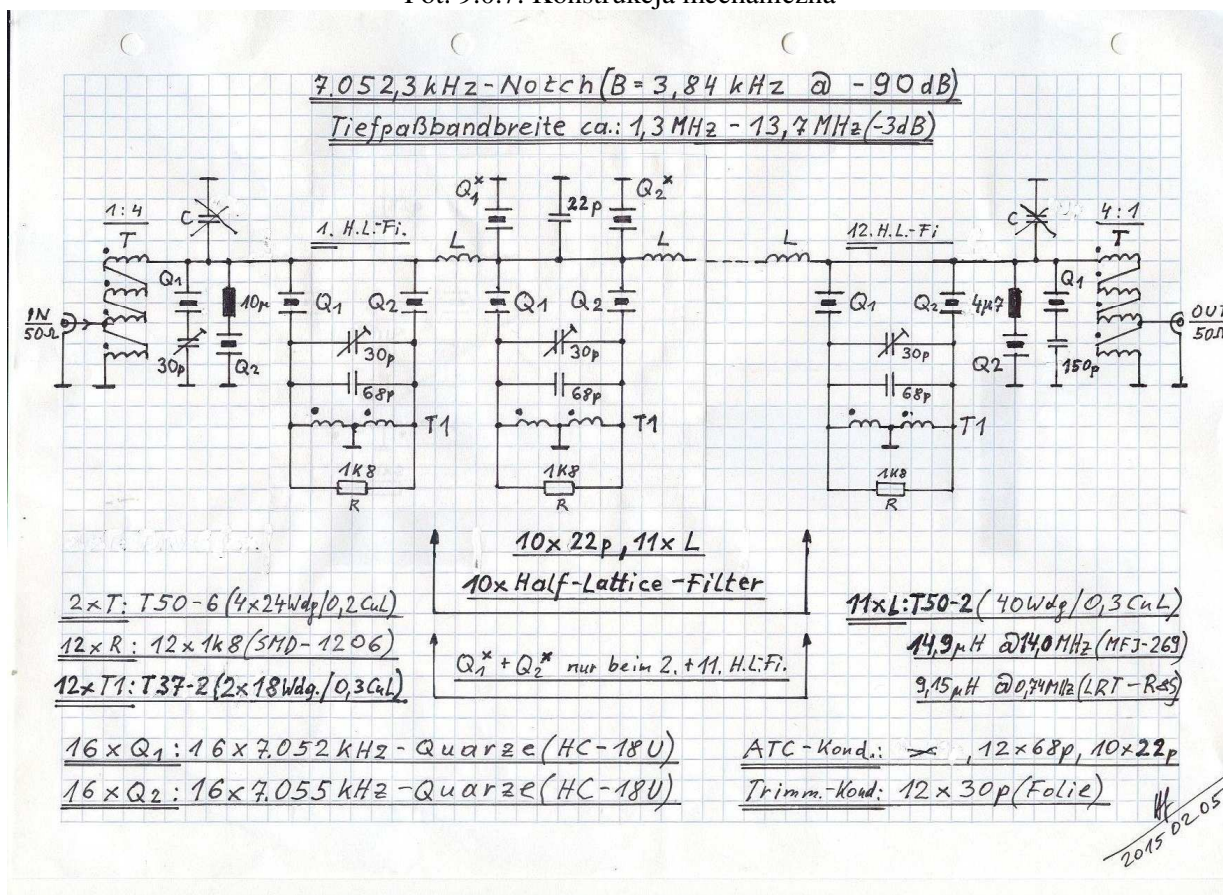 Fot. 9.6.7. Konstrukcja mechaniczna
7.052,3 kHz-Notch (B= 3,84 kHz @ -90dB)
Tiefpaßbandbreite ca.: 1,3 MHz - 13,7 MHz (-3dB)
1:4
T
C
1. H.L.-Fi.
L
Q1*
22p
Q2*
L
L
12.H.L.-Fi
C
4:1
T
IN
50Ω
Q1
30p
10µ
Q2
Q1
Q2
30p
68p
T1
1K8
R
Q1
Q2
30p
68p
T1
1K8
R
Q1
Q2
30p
68p
T1
1K8
R
4µ7
Q2
Q1
150p
OUT
50Ω
10x 22p, 11x L
10x Half-Lattice-Filter
Q1* + Q2* nur beim 2. + 11. H.L.Fi.
2xT: T50-6 (4x24Wdg/0,2CuL)
12xR: 12x1k8 (SMD-1206)
12xT1: T37-2 (2x18Wdg./0,3CuL)
11xL: T50-2 (40Wdg/0,3CuL)
14,9µH @14,0MHz (MFJ-269)
9,15µH @0,74MHz (LRT-R&S)
16xQ1: 16x7.052 kHz-Quarze (HC-18U)
16xQ2: 16x7.055 kHz-Quarze (HC-18U)
ATC-Kond.: , 12x68p, 10x22p
Trimm.-Kond: 12x30p (Folie)
2015 02 05